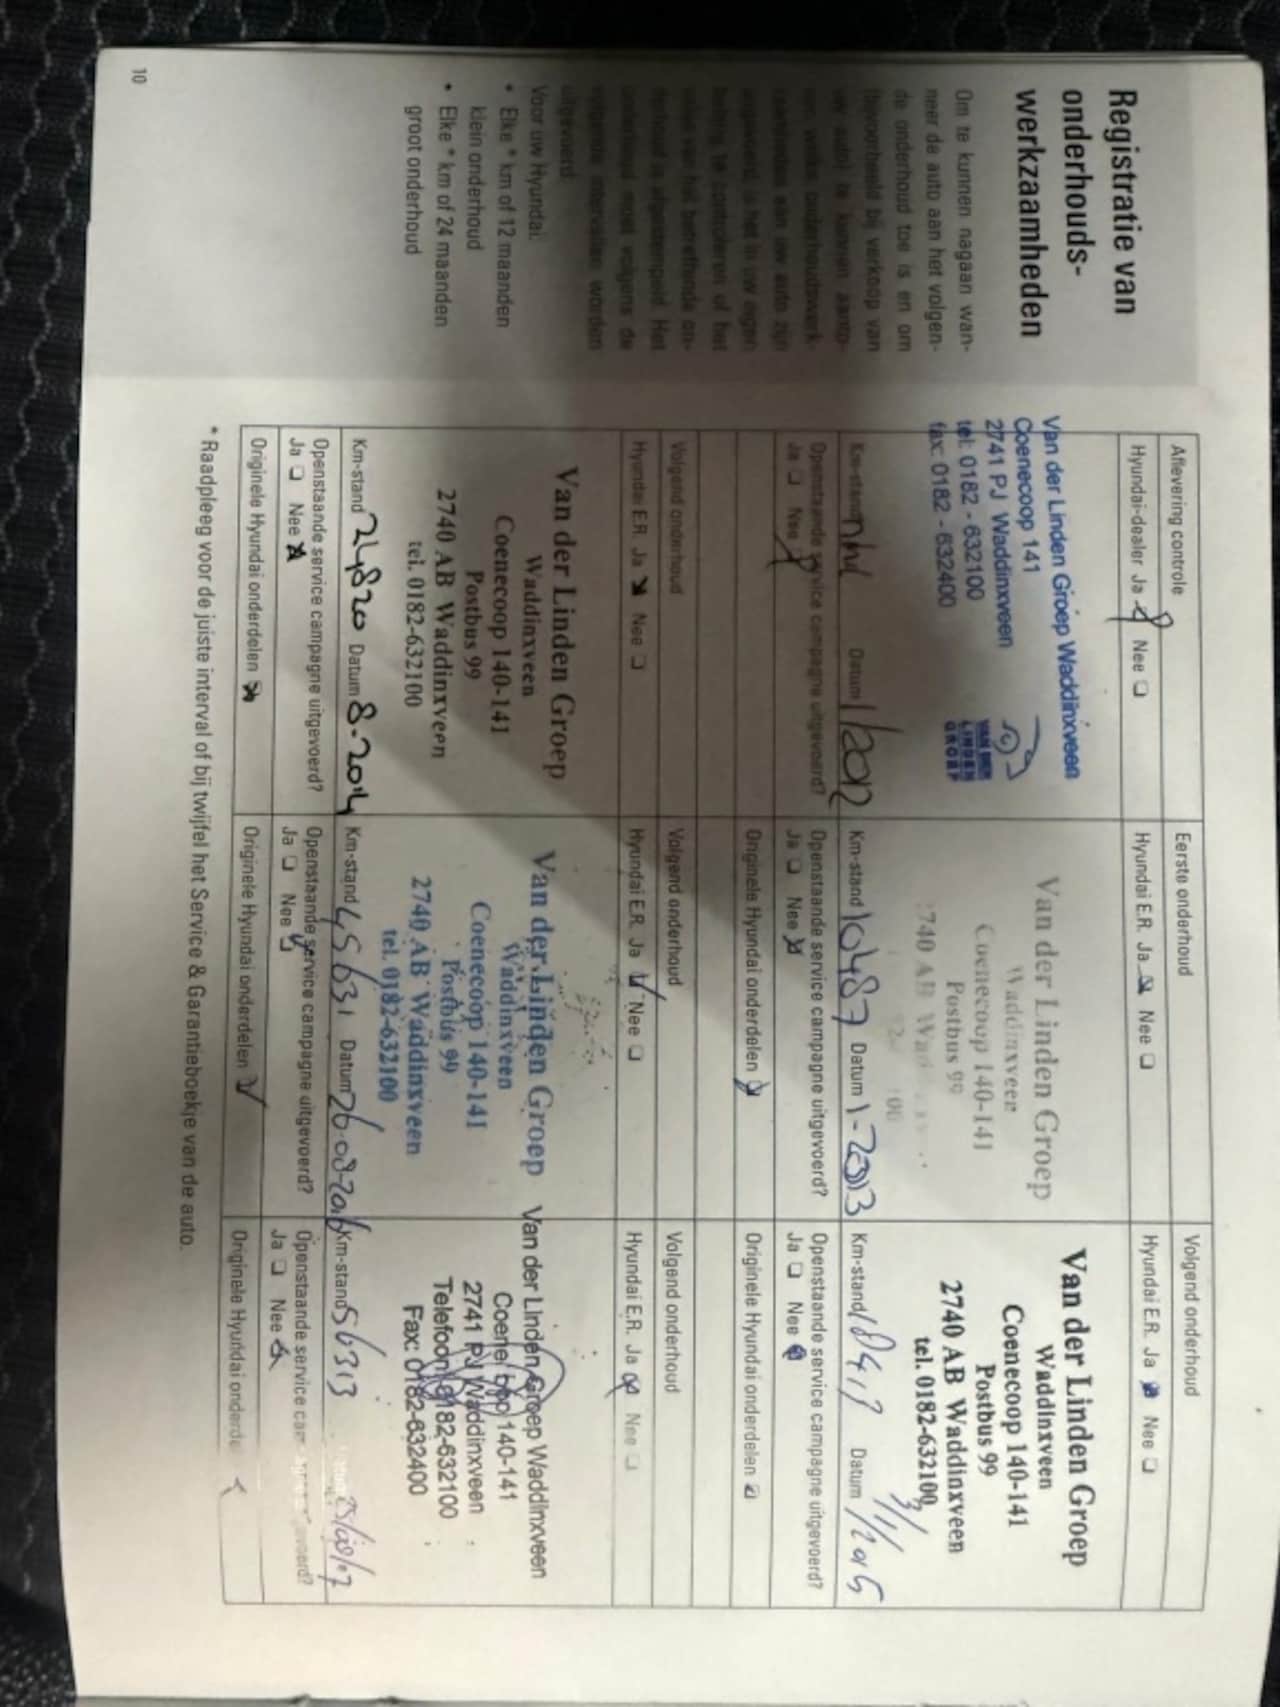 Registratie van
onderhouds-
werkzaamheden
Om te kunnen nagaan wan-
neer de auto aan het volgen-
de onderhoud toe is en om
(bijvoorbeeld bij verkoop van
uw auto) te kunnen aanto-
nen welke onderhoudswerk-
zaamheden aan uw auto zijn
uitgevoerd, is het in uw eigen
belang te controleren of het
vakje van het betreffende on-
derhoud is afgestempeld. Het
onderhoud moet volgens de
volgende intervallen worden
uitgevoerd.
Voor uw Hyundai:
• Elke * km of 12 maanden
klein onderhoud
• Elke * km of 24 maanden
groot onderhoud
10
Aflevering controle
Hyundai-dealer Ja Nee
Van der Linden Groep Waddinxveen
Coenecoop 141
2741 PJ Waddinxveen
tel: 0182 - 632100
fax: 0182 - 632400
VAN DER
LINDEN
GROEP
Km-stand nhl Datum 1/2012
Openstaande service campagne uitgevoerd?
Ja Nee
Eerste onderhoud
Hyundai E.R. Ja Nee
Van der Linden Groep
Waddinxveen
Coenecoop 140-141
Postbus 99
2740 AB
Km-stand 10487 Datum 1-2013
Openstaande service campagne uitgevoerd?
Ja Nee
Originele Hyundai onderdelen
Volgend onderhoud
Hyundai E.R. Ja Nee
Van der Linden Groep
Waddinxveen
Coenecoop 140-141
Postbus 99
2740 AB Waddinxveen
tel. 0182-632100
Km-stand Datum
Openstaande service campagne uitgevoerd?
Ja Nee
Originele Hyundai onderdelen
Volgend onderhoud
Hyundai E.R. Ja Nee
Van der Linden Groep
Waddinxveen
Coenecoop 140-141
Postbus 99
2740 AB Waddinxveen
tel. 0182-632100
Km-stand 24820 Datum 8-2014
Openstaande service campagne uitgevoerd?
Ja Nee
Originele Hyundai onderdelen
Volgend onderhoud
Hyundai E.R. Ja Nee
Van der Linden Groep
Waddinxveen
Coenecoop 140-141
Postbus 99
2740 AB Waddinxveen
tel. 0182-632100
Km-stand 45631 Datum 26-08-2016
Openstaande service campagne uitgevoerd?
Ja Nee
Originele Hyundai onderdelen
Volgend onderhoud
Hyundai E.R. Ja Nee
Van der Linden Groep Waddinxveen
140-141
2741 PJ Waddinxveen
Telefoon 0182-632100
Fax: 0182-632400
Km-stand 56313
Openstaande service
Ja Nee
Originele Hyundai
* Raadpleeg voor de juiste interval of bij twijfel het Service & Garantieboekje van de auto.